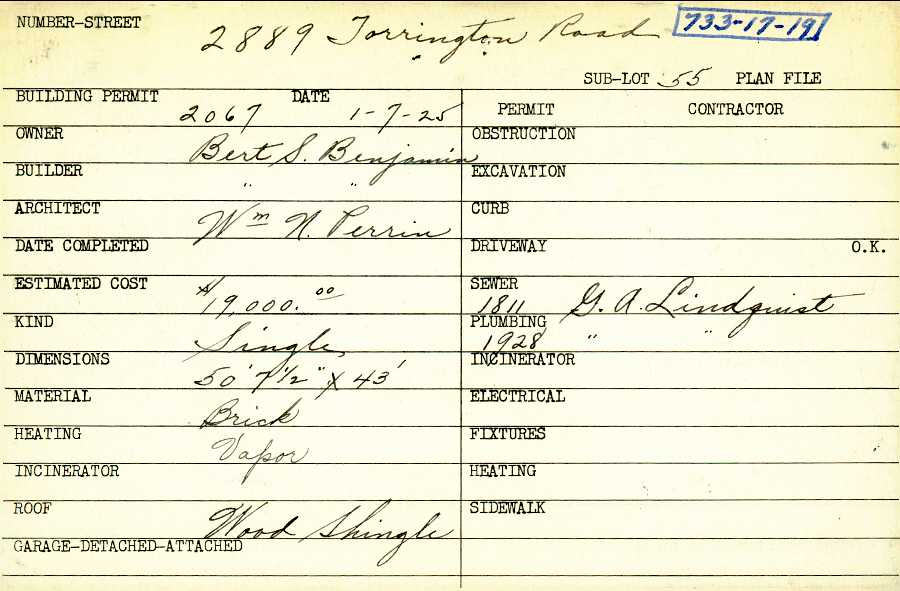 NUMBER-STREET 2889 Torrington Road 733-17-19
SUB-LOT 55 PLAN FILE
BUILDING PERMIT 2067 DATE 1-7-25 PERMIT CONTRACTOR
OWNER Bert S. Benjamin OBSTRUCTION
BUILDER " " EXCAVATION
ARCHITECT Wm N. Perrin CURB
DATE COMPLETED DRIVEWAY O.K.
ESTIMATED COST $19,000.00 SEWER 1811 G. A. Lindquist
KIND Single PLUMBING 1928 " "
DIMENSIONS 50' 7 1/2" x 43' INCINERATOR
MATERIAL Brick ELECTRICAL
HEATING Vapor FIXTURES
INCINERATOR HEATING
ROOF Wood Shingle SIDEWALK
GARAGE-DETACHED-ATTACHED